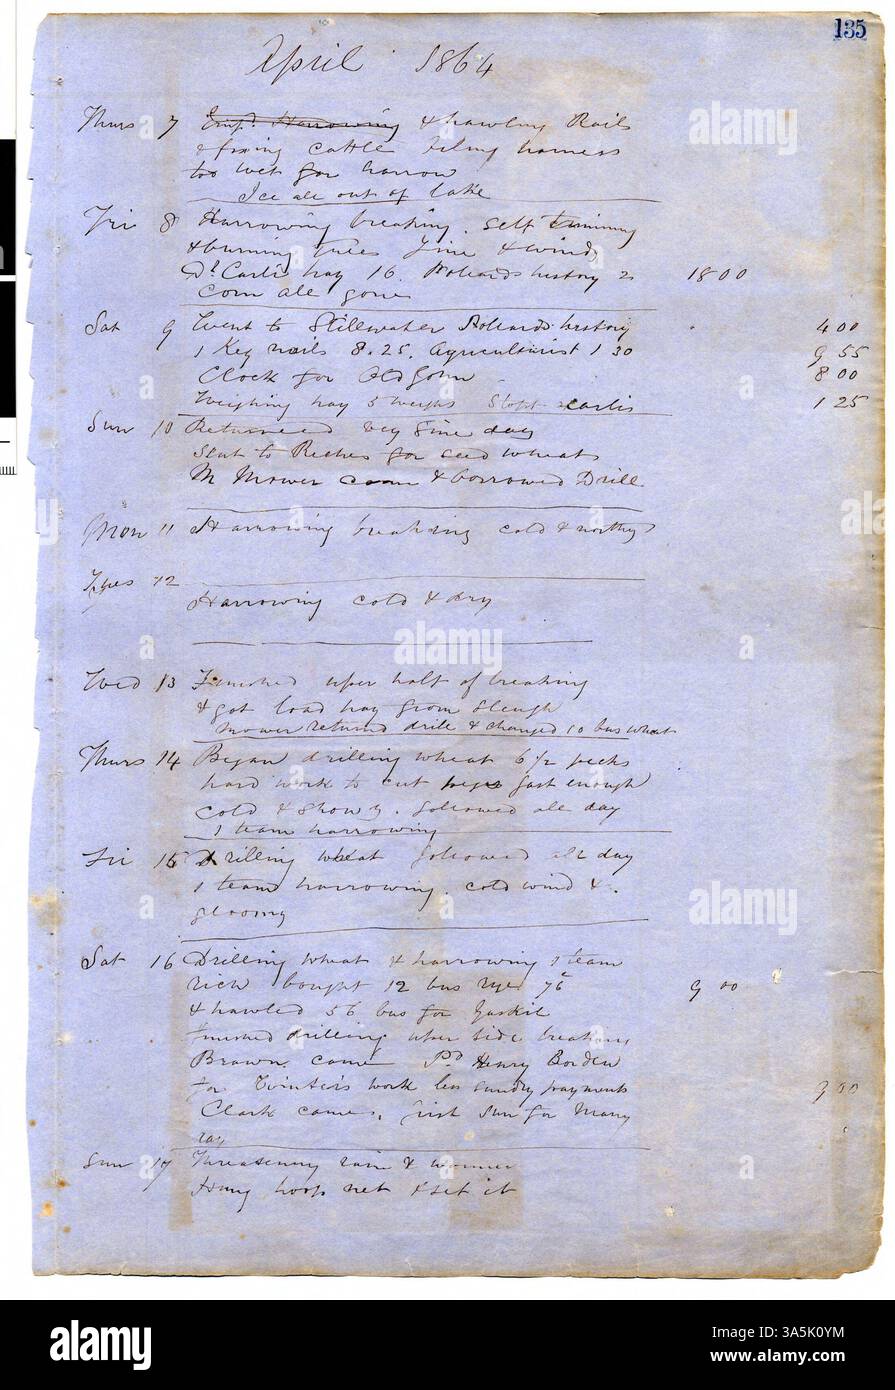 135
April 1864
Thurs 7 Empd Harrowing & hawling Rails
& fixing cattle harness
too wet for harrow
Ice all out of lake
Fri 8 Harrowing breaking. Self
& burning Fine & wind
Dd Carli hay 16. history 2 18 00
Corn all gone
Sat 9 Went to Stillwater history 4 00
1 Keg nails 8.25. Agriculturist 1 30 9 55
Clock for Old John 8 00
Weighing hay 5 weighs Stopt Carlis 1 25
Sun 10 Returned very fine day
Sent to for seed wheat
Mr Mower came & borrowed Drill
Mon 11 Harrowing breaking cold &
Tues 12
Harrowing cold & dry
Wed 13 Finished uper half of breaking
& got load hay from Slough
Mower returned drill & changed 10 bus wheat
Thurs 14 Began drilling wheat 6 1/2 pecks
hard work to cut fast enough
cold & Showy. followed all day
1 team harrowing
Fri 15 Drilling wheat followed all day
1 team harrowing. cold wind &
gloomy
Sat 16 Drilling wheat & harrowing 1 team
rich bought 12 bus rye 9 00
& hawled 56 bus for Gaskil
Finished drilling uper side breaking
Brown came Pd Henry Borden
for Winter's work less sundry payments 9 00
Clark came. first Sun for Many
Day
Sun 17 Threatening rain & warmer
Hung hoop net & set it
alamy
Image ID: 3A5K0YM
www.alamy.com